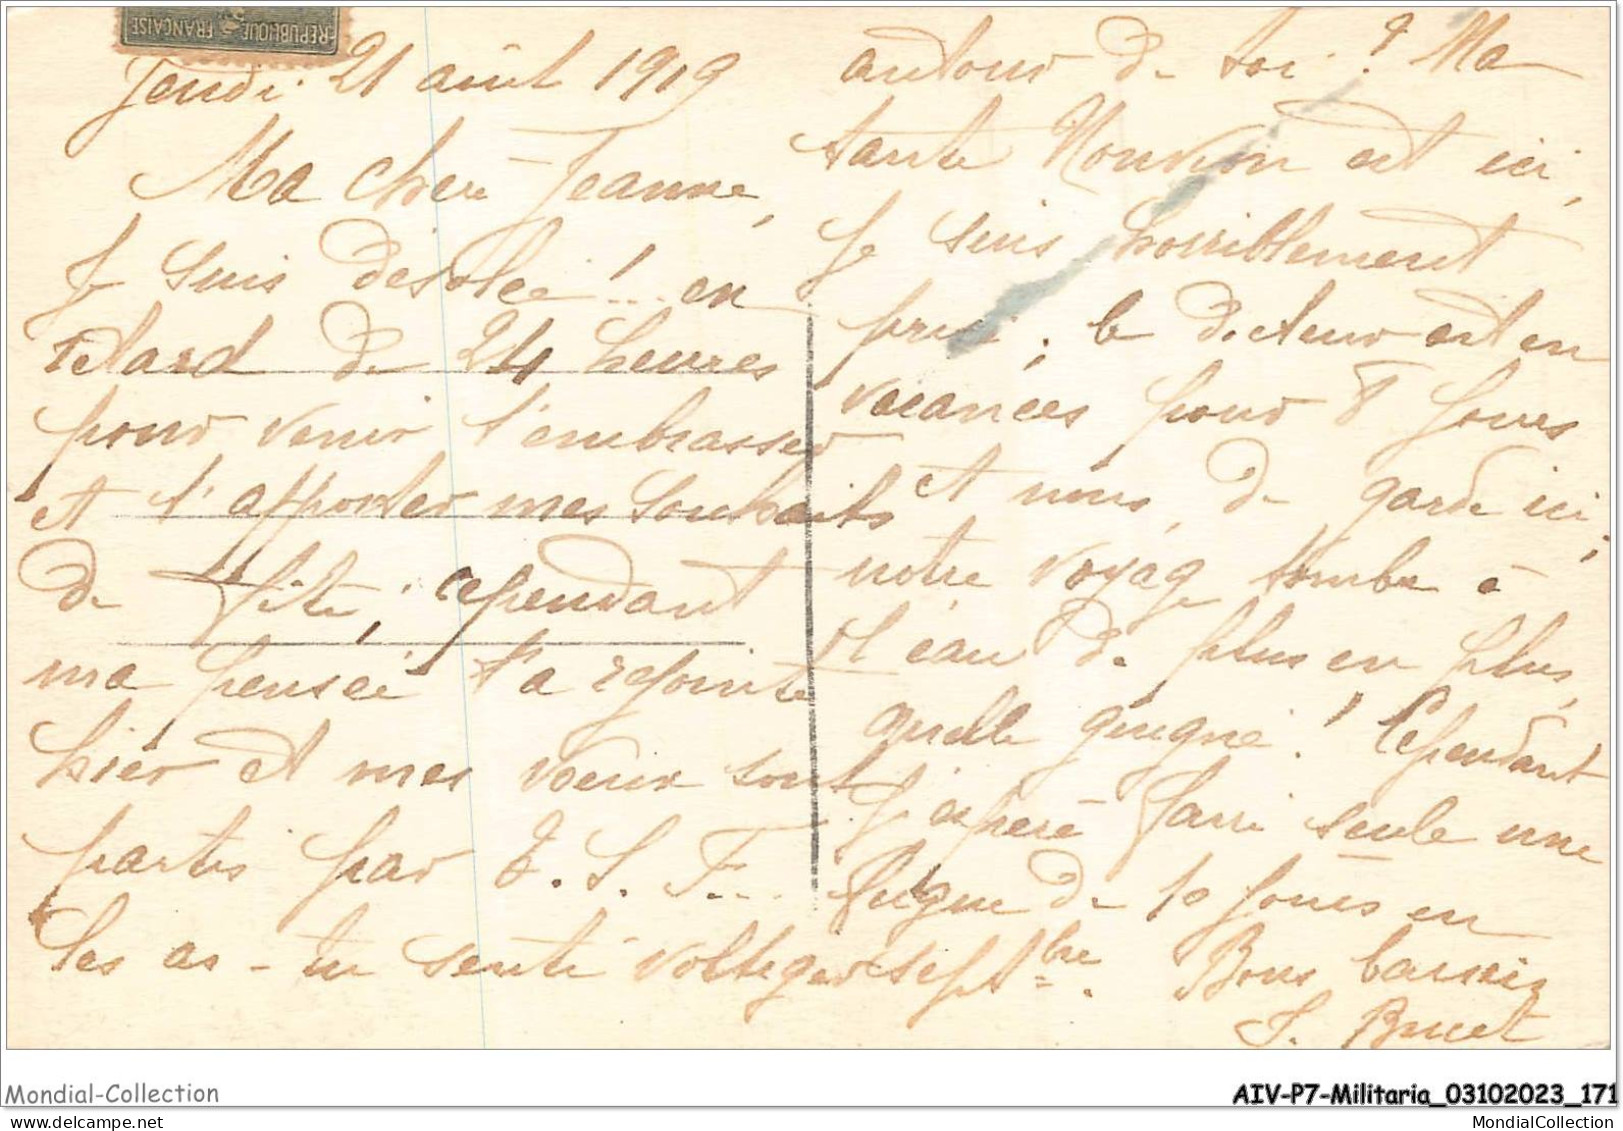 REPUBLIQUE FRANÇAISE
Jeudi 21 août 1919
Ma chère Jeanne,
Je suis désolée !... en
retard de 24 heures
pour venir t'embrasser
et t'apporter mes souhaits
de fête, cependant
ma pensée t'a rejointe
hier et mes vœux sont
partis par T.S.F...
Les as-tu senti voltiger
autour de toi ? Ma
tante Nouvion est ici,
Je suis horriblement
prise, le docteur est en
vacances pour 8 jours
et nous, de garde ici,
notre voyage tombe à
l'eau de plus en plus,
quelle guigne ! Cependant
j'espère faire seule une
fugue de 10 jours en
septbre. Bons baisers
J. Bucet
Mondial-Collection
AIV-P7-Militaria_03102023_171
MondialCollection.com
MondialCollection